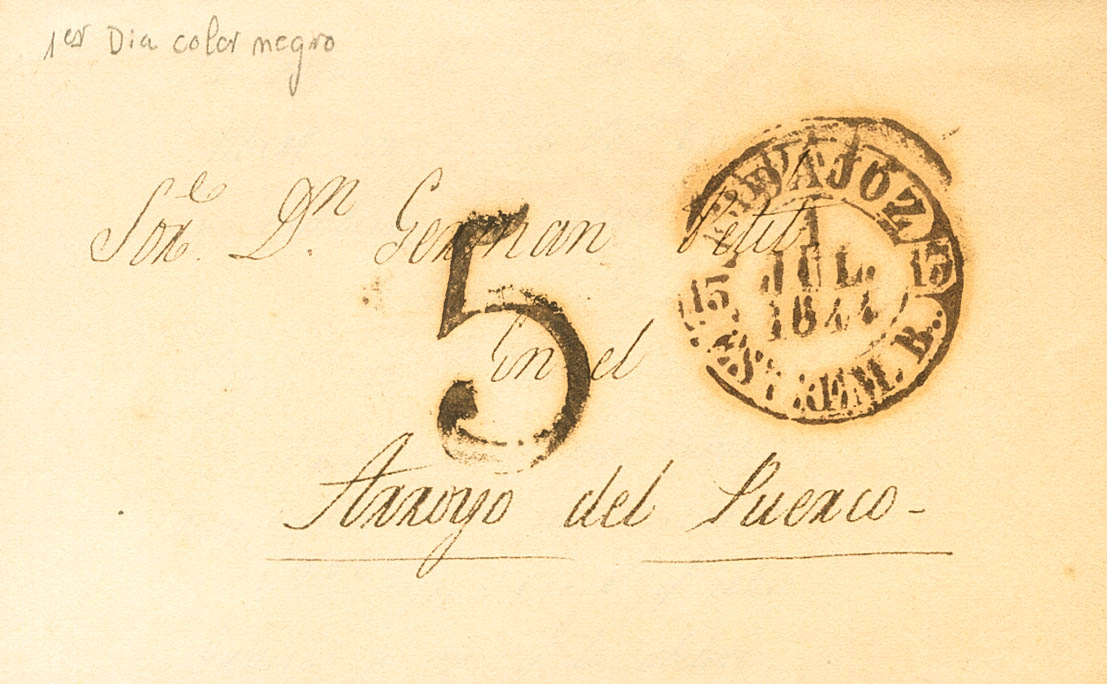 1er Dia color negro
Sore. Dn. German Petit
5
BADAJOZ
1
JUL.
1844
15 15
ESTREM. B.
En el
Arroyo del Puerco-